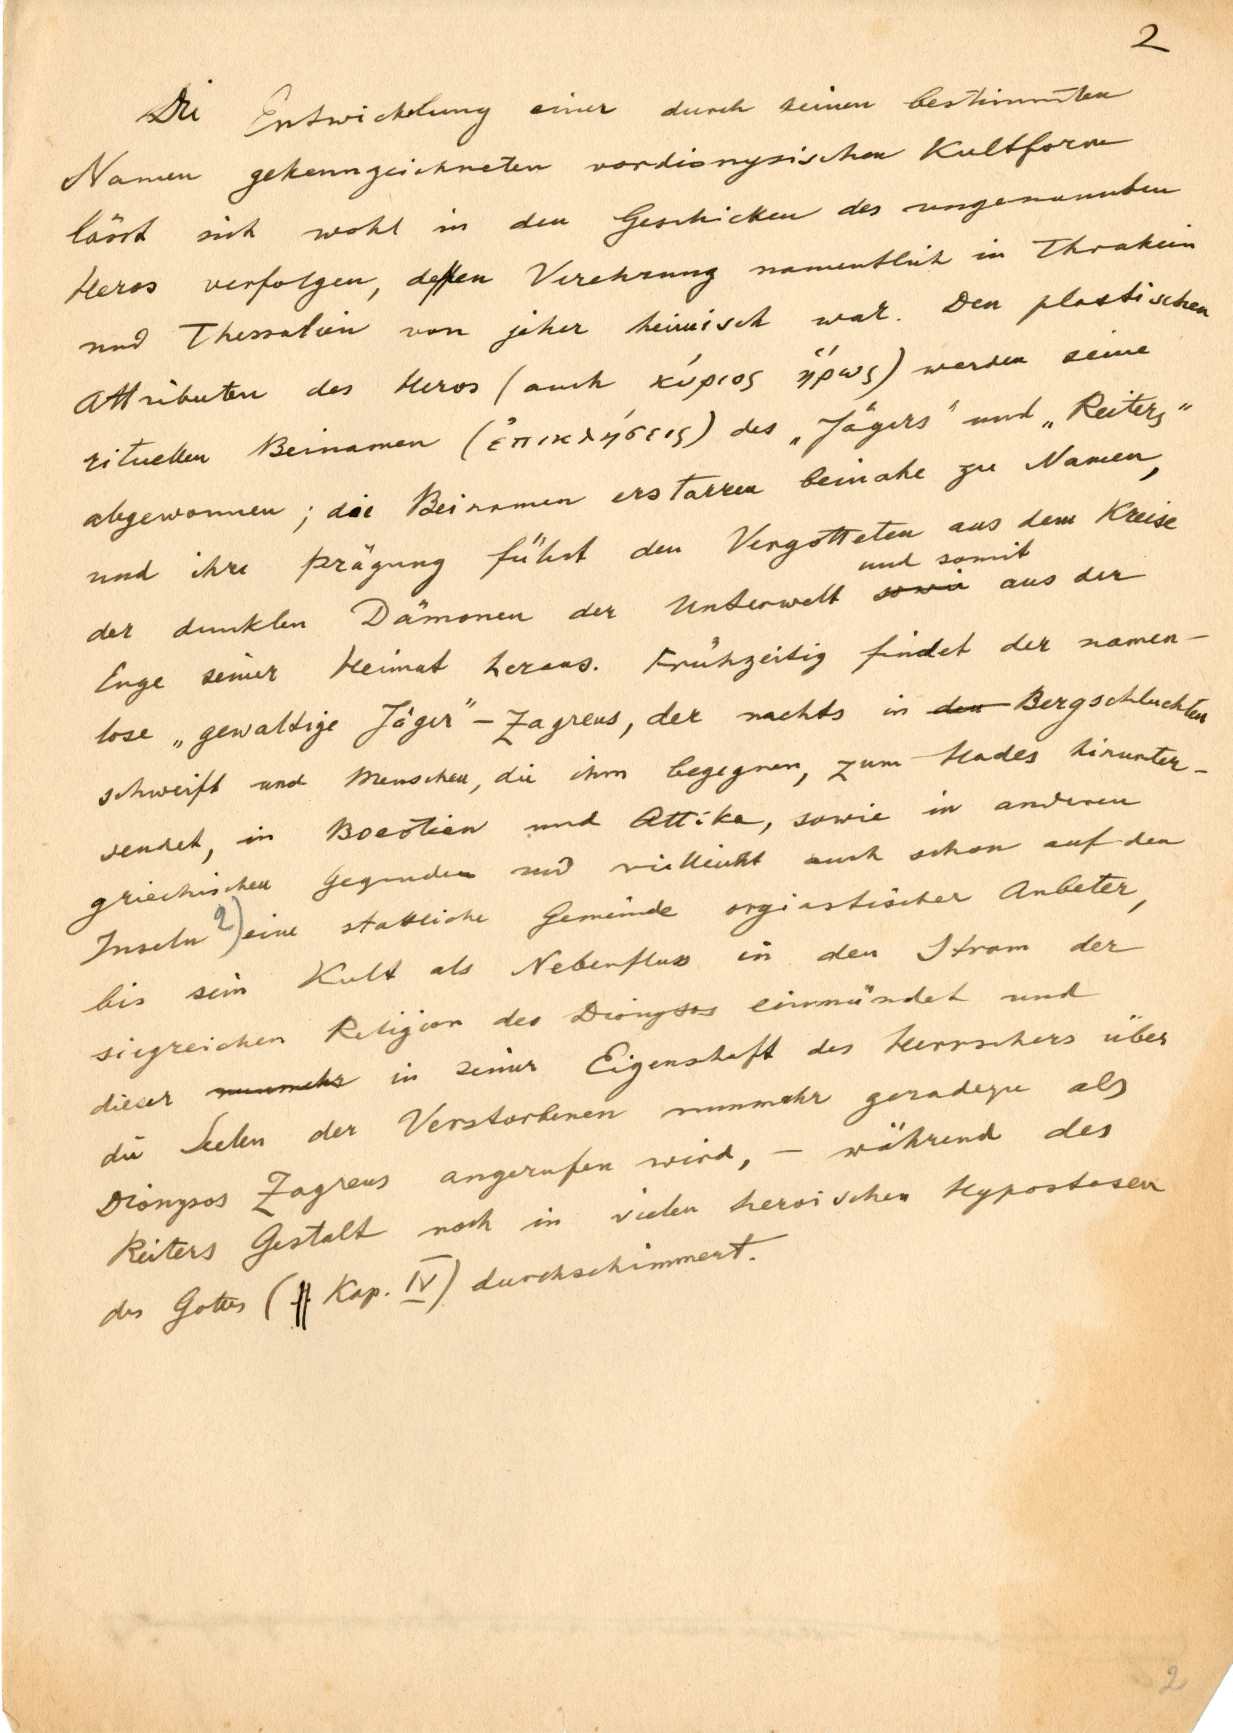 2
Die Entwickelung einer durch seinen bestimmten
Namen gekennzeichneten vordionysischen Kultform
lässt sich wohl in den Geschicken des ungenannten
Heros verfolgen, dessen Verehrung namentlich in Thrakien
und Thessalien von jeher heimisch war. Den plastischen
Attributen des Heros (auch κύριος ἥρως) werden seine
rituellen Beinamen (ἐπικλήσεις) des „Jägers“ und „Reiters“
abgewonnen; die Beinamen erstarren beinahe zu Namen,
und ihre Prägung führt den Vergotteten aus dem Kreise
und somit
der dunklen Dämonen der Unterwelt sowie aus der
Enge seiner Heimat heraus. Frühzeitig findet der namen-
lose „gewaltige Jäger“ – Zagreus, der nachts in den Bergschluchten
schweift und Menschen, die ihm begegnen, zum Hades hinunter-
sendet, in Boeotien und Attika, sowie in anderen
griechischen Gegenden und vielleicht auch schon auf den
Inseln 2) eine stattliche Gemeinde orgiastischer Anbeter,
bis sein Kult als Nebenfluss in den Strom der
siegreichen Religion des Dionysos einmündet und
dieser nunmehr in seiner Eigenschaft des Herrschers über
die Seelen der Verstorbenen nunmehr geradezu als
Dionysos Zagreus angerufen wird, – während des
Reiters Gestalt noch in vielen heroischen Hypostasen
des Gottes (Kap. IV) durchschimmert.
2